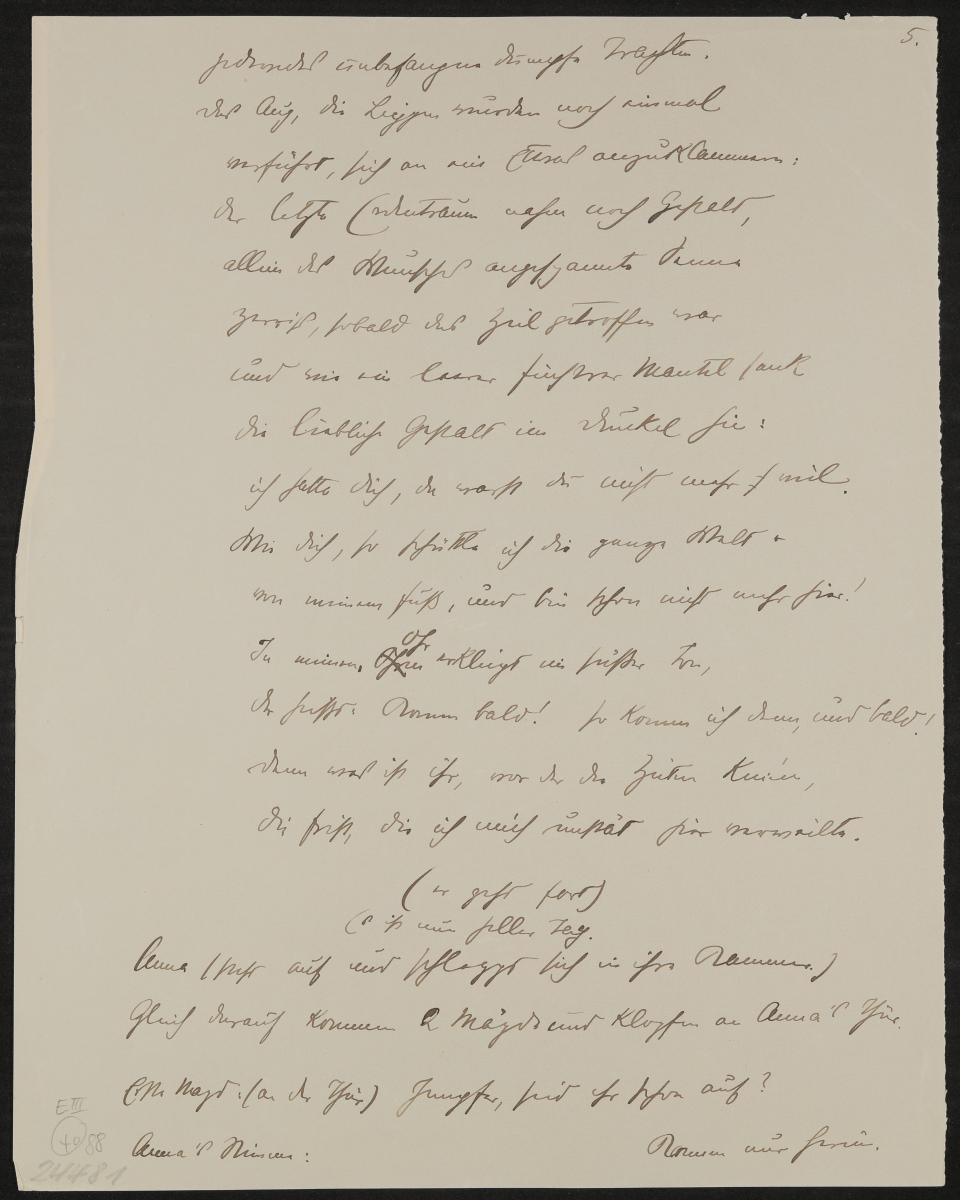 5.
jedwedes unbefangne dumpfe Trachten.
Das Aug, die Lippen wurden noch einmal
verführt, sich an ein Etwas anzuklammern:
der letzte Erdentraum nahm noch Gestalt,
allein des Wunsches angespannte Senne
zerriß, sobald das Ziel getroffen war
und wie ein leerer finstrer Mantel sank
die liebliche Gestalt ins Dunkel hin:
ich hatte dich, da warst du nicht mehr viel.
Wie dich, so schüttle ich die ganze Welt
von meinem Fuß, und bin schon nicht mehr hier!
In meinem Ohr erklingt ein süßer Ton,
der heißt: Komm bald! so komm ich denn, und bald!
denn was ist ihr, vor der die Zeiten knien,
die Frist, die ich mich unstät hier verweilte.
(er geht fort)
Es ist nun heller Tag.
Anna (steht auf und schleppt sich in ihre Kammer.)
Gleich darauf kommen 2 Mägde und klopfen an Anna's Thür.
Erste Magd: (an der Thür) Jungfer, seid ihr schon auf?
Anna's Stimme: Komm nur herein.
E III
88
21481